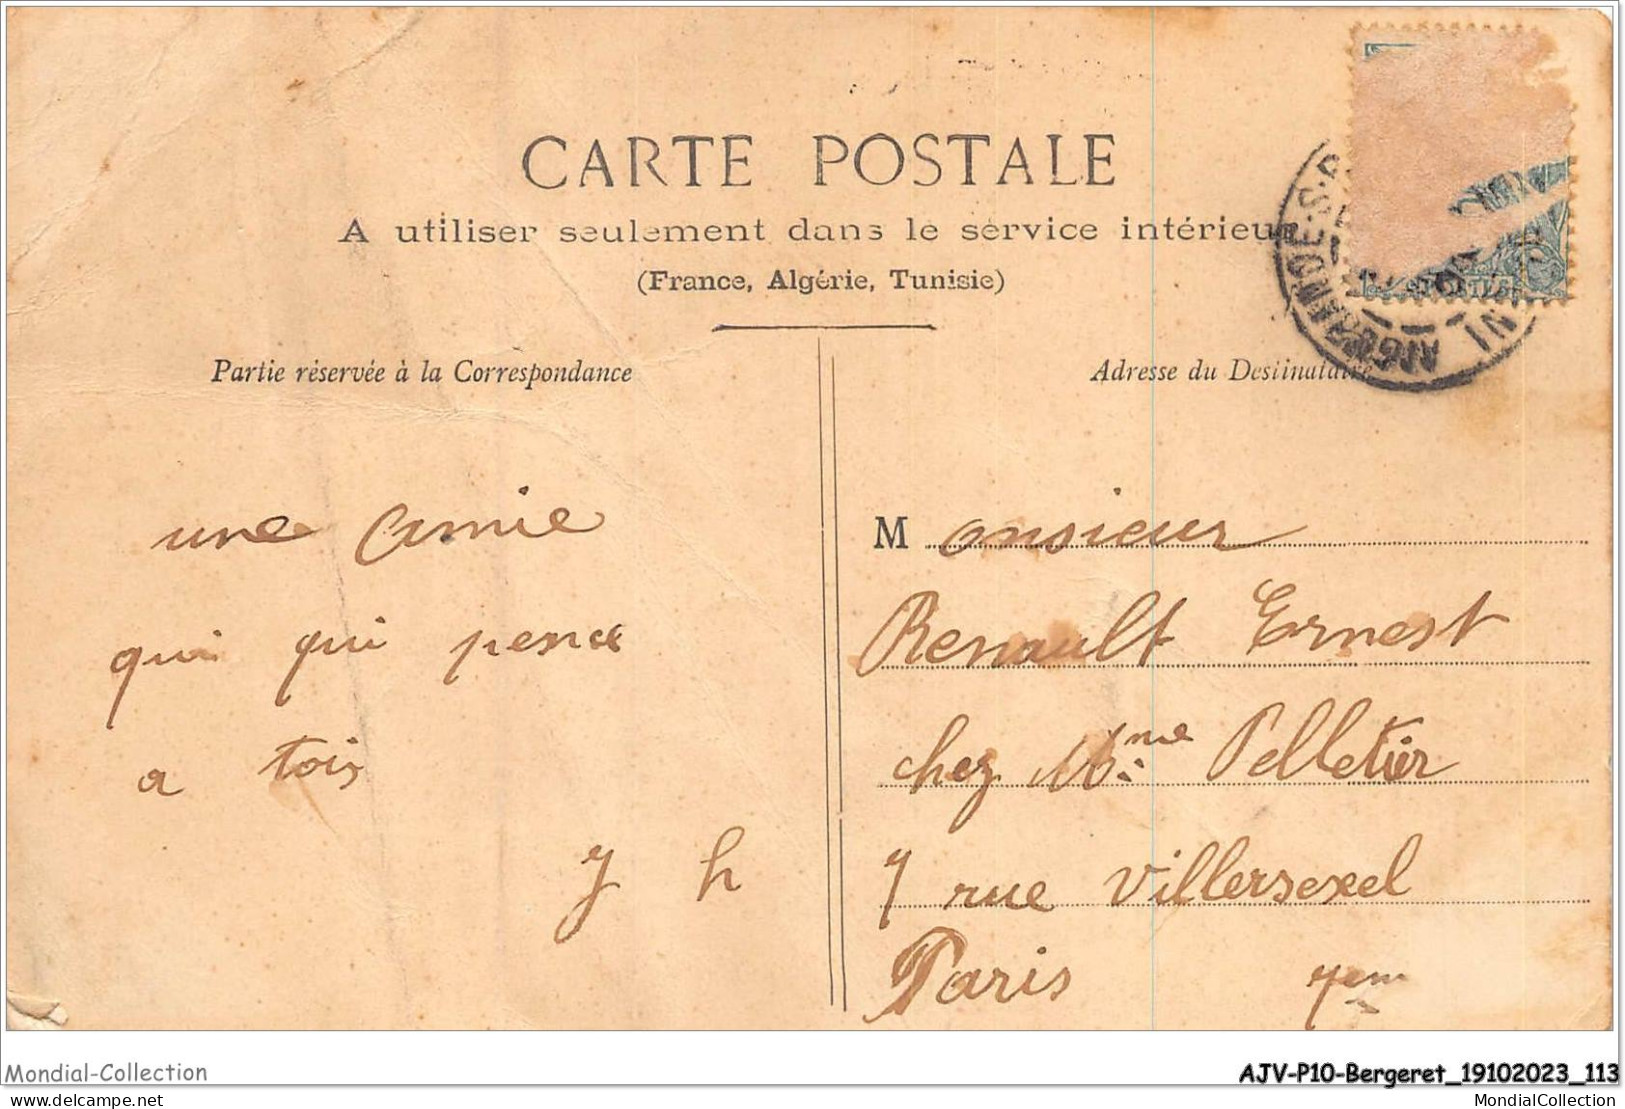 CARTE POSTALE
A utiliser seulement dans le service intérieur
(France, Algérie, Tunisie)
Partie réservée à la Correspondance
Adresse du Destinataire
une amie
qui qui pense
a tois
y h
Monsieur
Renault Ernest
chez Mme Pelletier
7 rue Villersexel
Paris 7em
POSTES
Mondial-Collection
AJV-P10-Bergeret_19102023_113
www.delcampe.net
MondialCollection